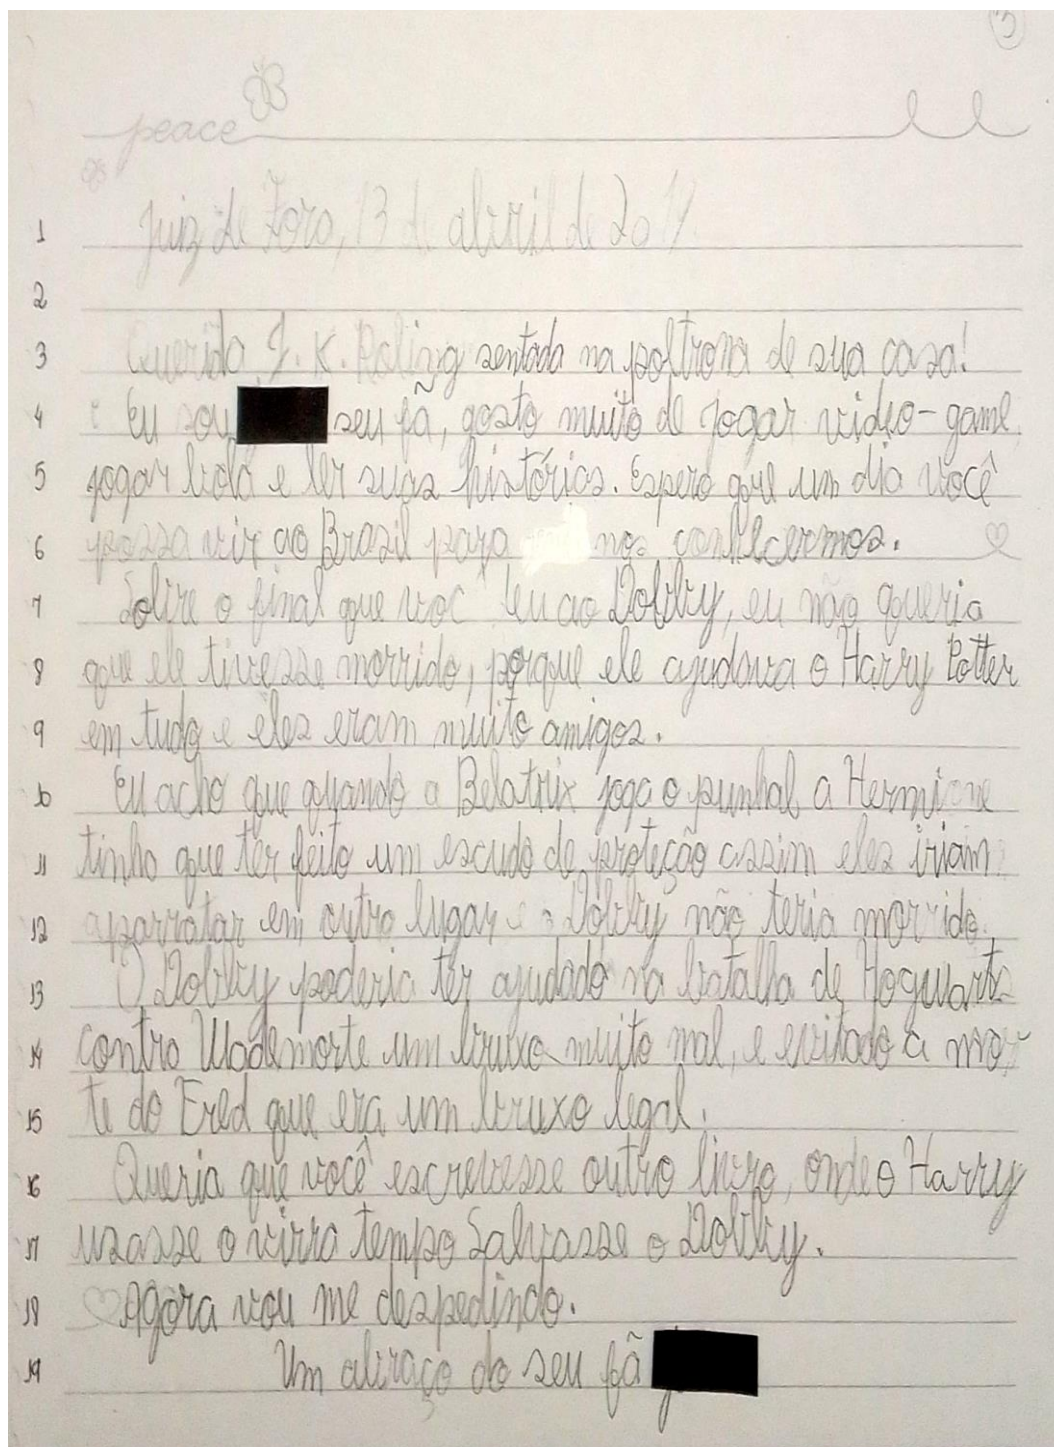 3
peace
1 Juiz de Fora, 13 de abril de 2017
2
3 Querida J. K. Roling sentada na poltrona de sua casa!
4 Eu sou seu fã, gosto muito de jogar vidio-game,
5 jogar bola e ler suas histórias. Espero que um dia você
6 possa vir ao Brasil para nos conhecermos.
7 Sobre o final que voc deu ao Dobby, eu não queria
8 que ele tivesse morrido, porque ele ajudava o Harry Potter
9 em tudo e eles eram muito amigos.
10 Eu acho que quando a Belatrix joga o punhal a Hermione
11 tinha que ter feito um escudo de proteção assim eles iriam
12 aparratar em outro lugar e o Dobby não teria morrido.
13 O Dobby poderia ter ajudado na batalha de Hoguarts
14 contra Vlademorte um bruxo muito mal, e evitado a mor
15 te do Fred que era um bruxo legal.
16 Queria que você escrevesse outro livro, onde o Harry
17 usasse o virra tempo Salvasse o Dobby.
18 Agora vou me despedindo.
19 Um abraço do seu fã